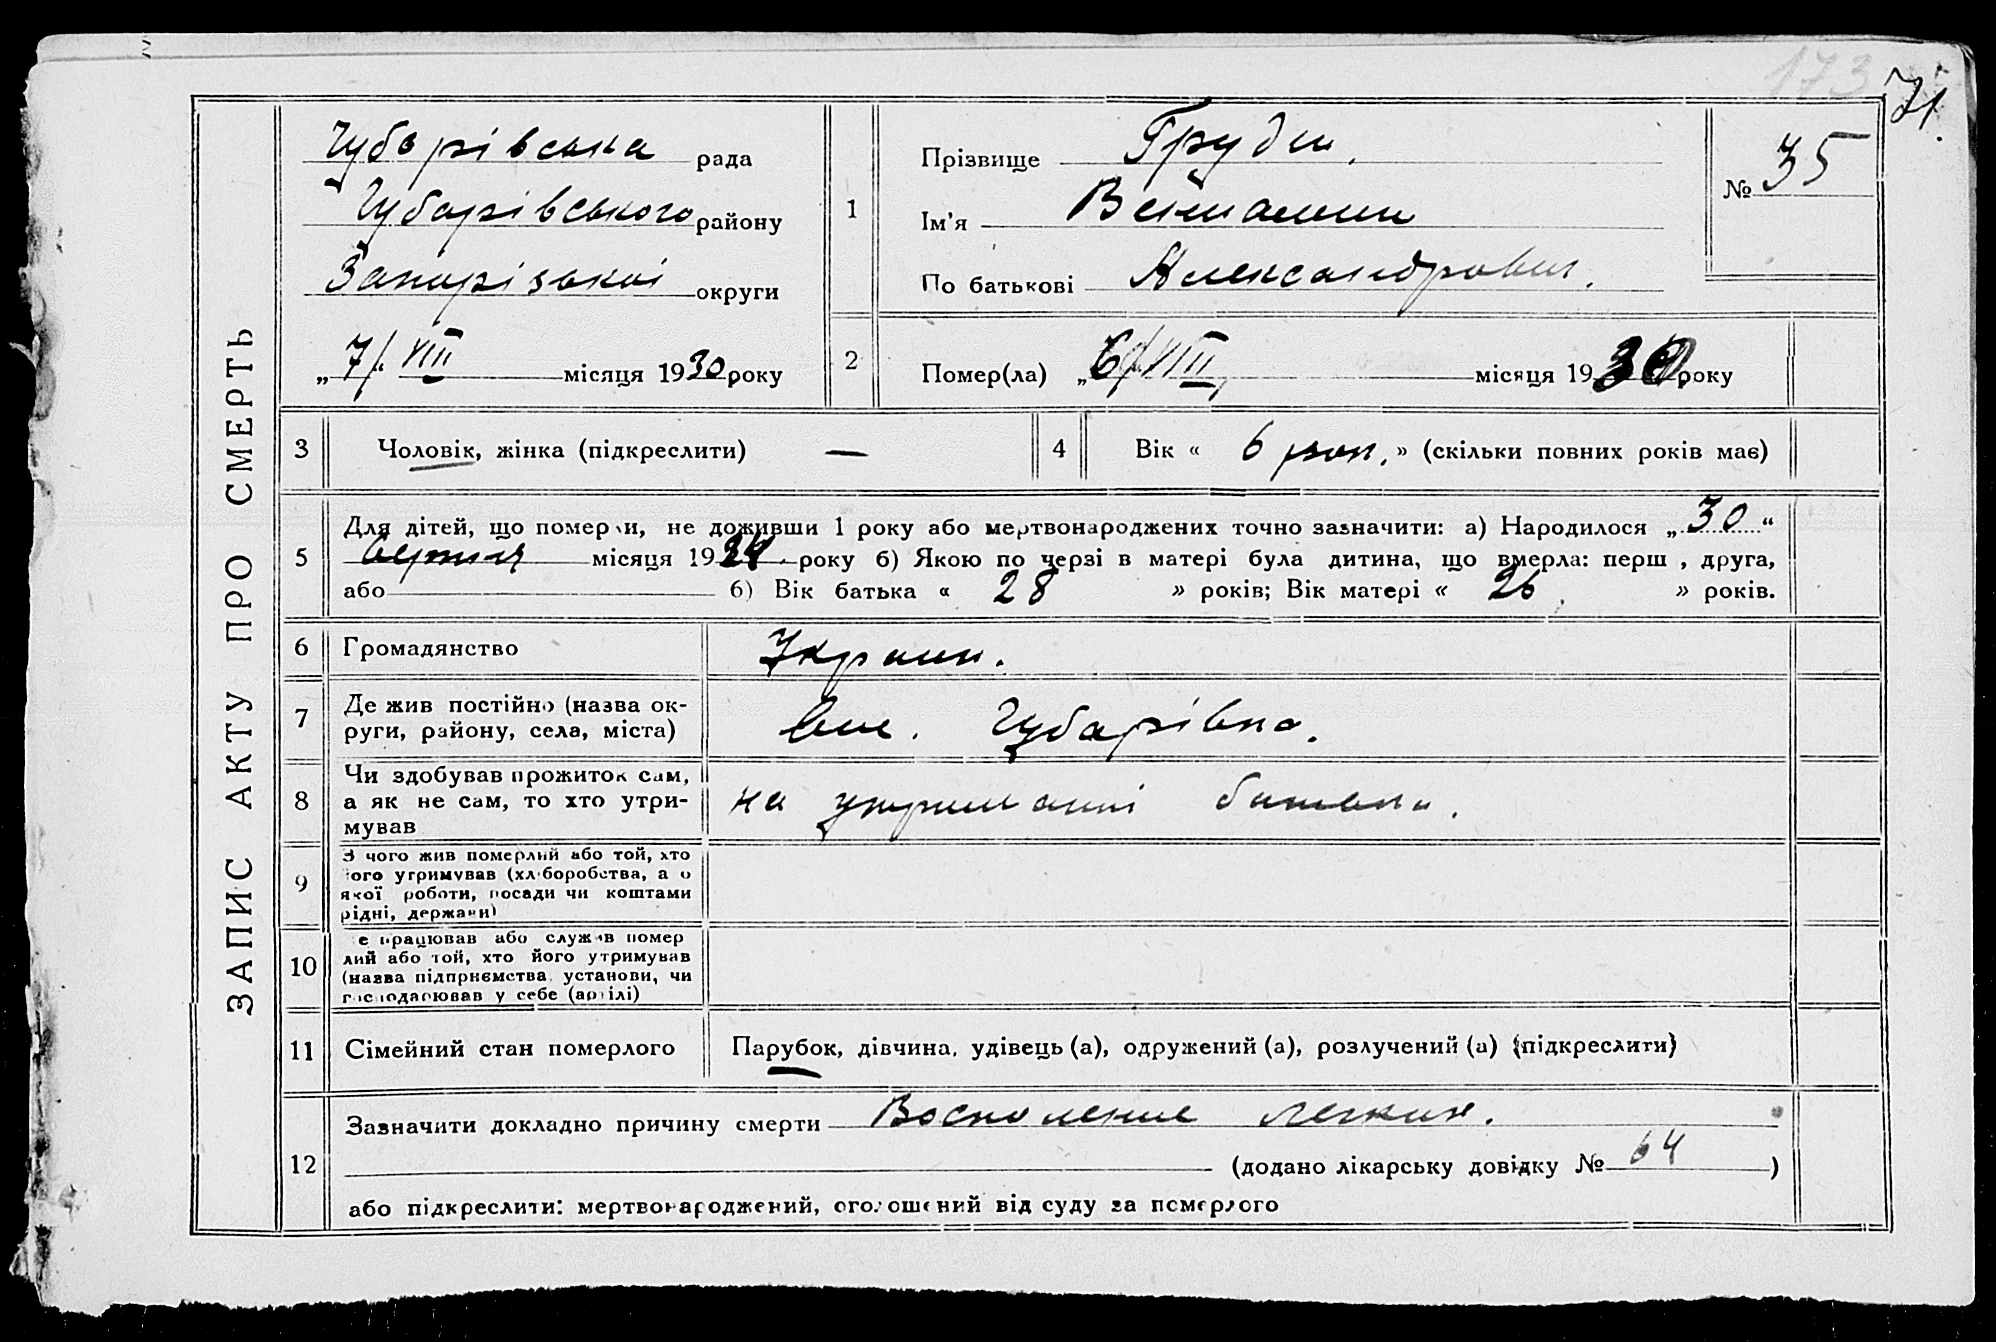 173
71
ЗАПИС АКТУ ПРО СМЕРТЬ
Чубарівська рада
Чубарівського району
Запорізької округи
„ 7/" VIII місяця 1930 року
1
Прізвище
Ім'я Вениамин
По батькові Александрович.
№ 35
2
Помер(ла) „ 6/VIII місяця 1930 року
3
Чоловік, жінка (підкреслити) —
4
Вік « 6 рок. » (скільки повних років має)
5
Для дітей, що померли, не доживши 1 року або мертвонароджених точно зазначити: а) Народилося „ 30 “
місяця 1924 року б) Якою по черзі в матері була дитина, що вмерла: перш , друга,
або б) Вік батька « 28 » років; Вік матері « 26 » років.
6
Громадянство Україн.
7
Де жив постійно (назва ок-
руги, району, села, міста)
Чубарівка.
8
Чи здобував прожиток сам,
а як не сам, то хто утри-
мував
на утриманні батька.
9
З чого жив померлий або той, хто
його утримував (хліборобства, а о
якої роботи, посади чи коштами
рідні, держави)
10
е працював або служив помер
лий або той, хто його утримував
(назва підприємства, установи, чи
господарював у себе (артілі)
11
Сімейний стан померлого
Парубок, дівчина, удівець (а), одружений (а), розлучений (а) (підкреслити)
12
Зазначити докладно причину смерти Воспаление легких.
(додано лікарську довідку № 64 )
або підкреслити: мертвонароджений, оголошений від суду за померлого